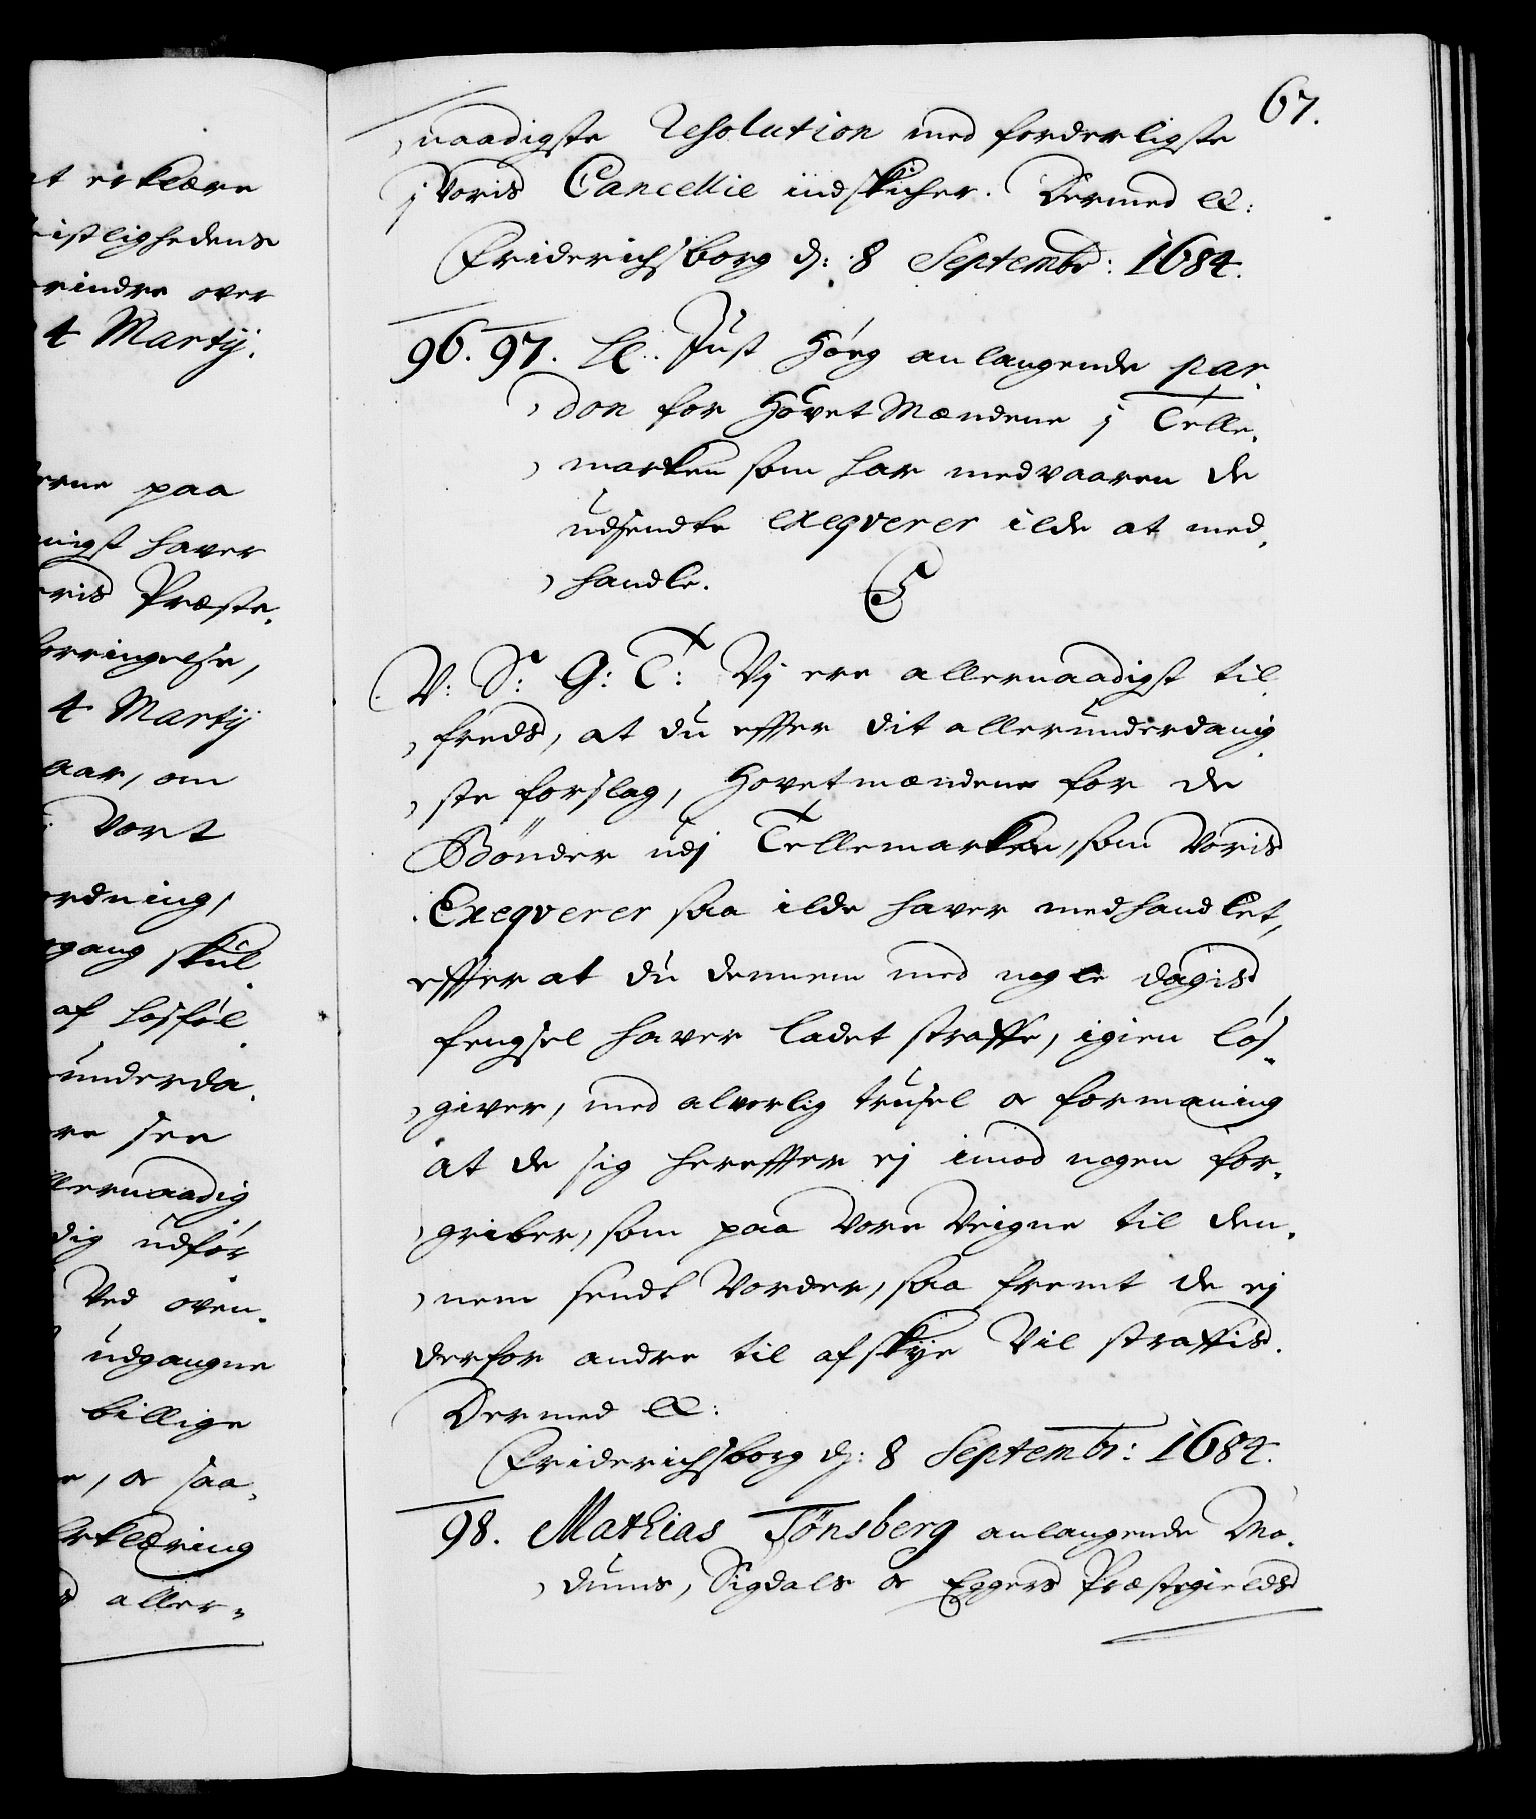 t erklære
istlighedens
rindre over
4 Martij.
erne paa
nigst haver
oris Præste,
forringelse,
4 Martij
aar, om
: Vort
ordning,
gang skul
af Losföl
underda,
re see
llernaadig
dig udför
Ved oven,
udgangne
billige
e, oc saa,
Erklæring
aller,
67.
naadigste Resolution med forderligste
j Voris Cancellie indskicher. Dermed &:
Friderichsborg dj: 8 Septembr: 1684.
96. 97. H: Just Hög anlangende par,
don for Hovet Mændene j Telle,
marken som har medvaaren de
udsendte exeqverer ilde at med,
handle.
V: S: G: T: Vj ere allernaadigst til
freds, at du effter dit allerunderdanig
ste forslag, Hovetmændene for de
Bönder udj Tellemarken, som Voris
Exeqverer saa ilde haver medhandlet,
effter at du dennem med nogle dagis
fengsel haver ladet straffe, igien lös,
giver, med alvorlig trusel oc formaning
at de sig hereffter ej imod nogen for,
griber, som paa Vore Veigne til den,
nem sendt Vorder, saa fremt de ej
derfor andre til afskye Vil straffis.
Dermed &:
Friderichsborg dj: 8 Septembr: 1684.
98. Mathias Tönsberg anlangende Mo,
dums, Sigdals oc Eggers Præstegields